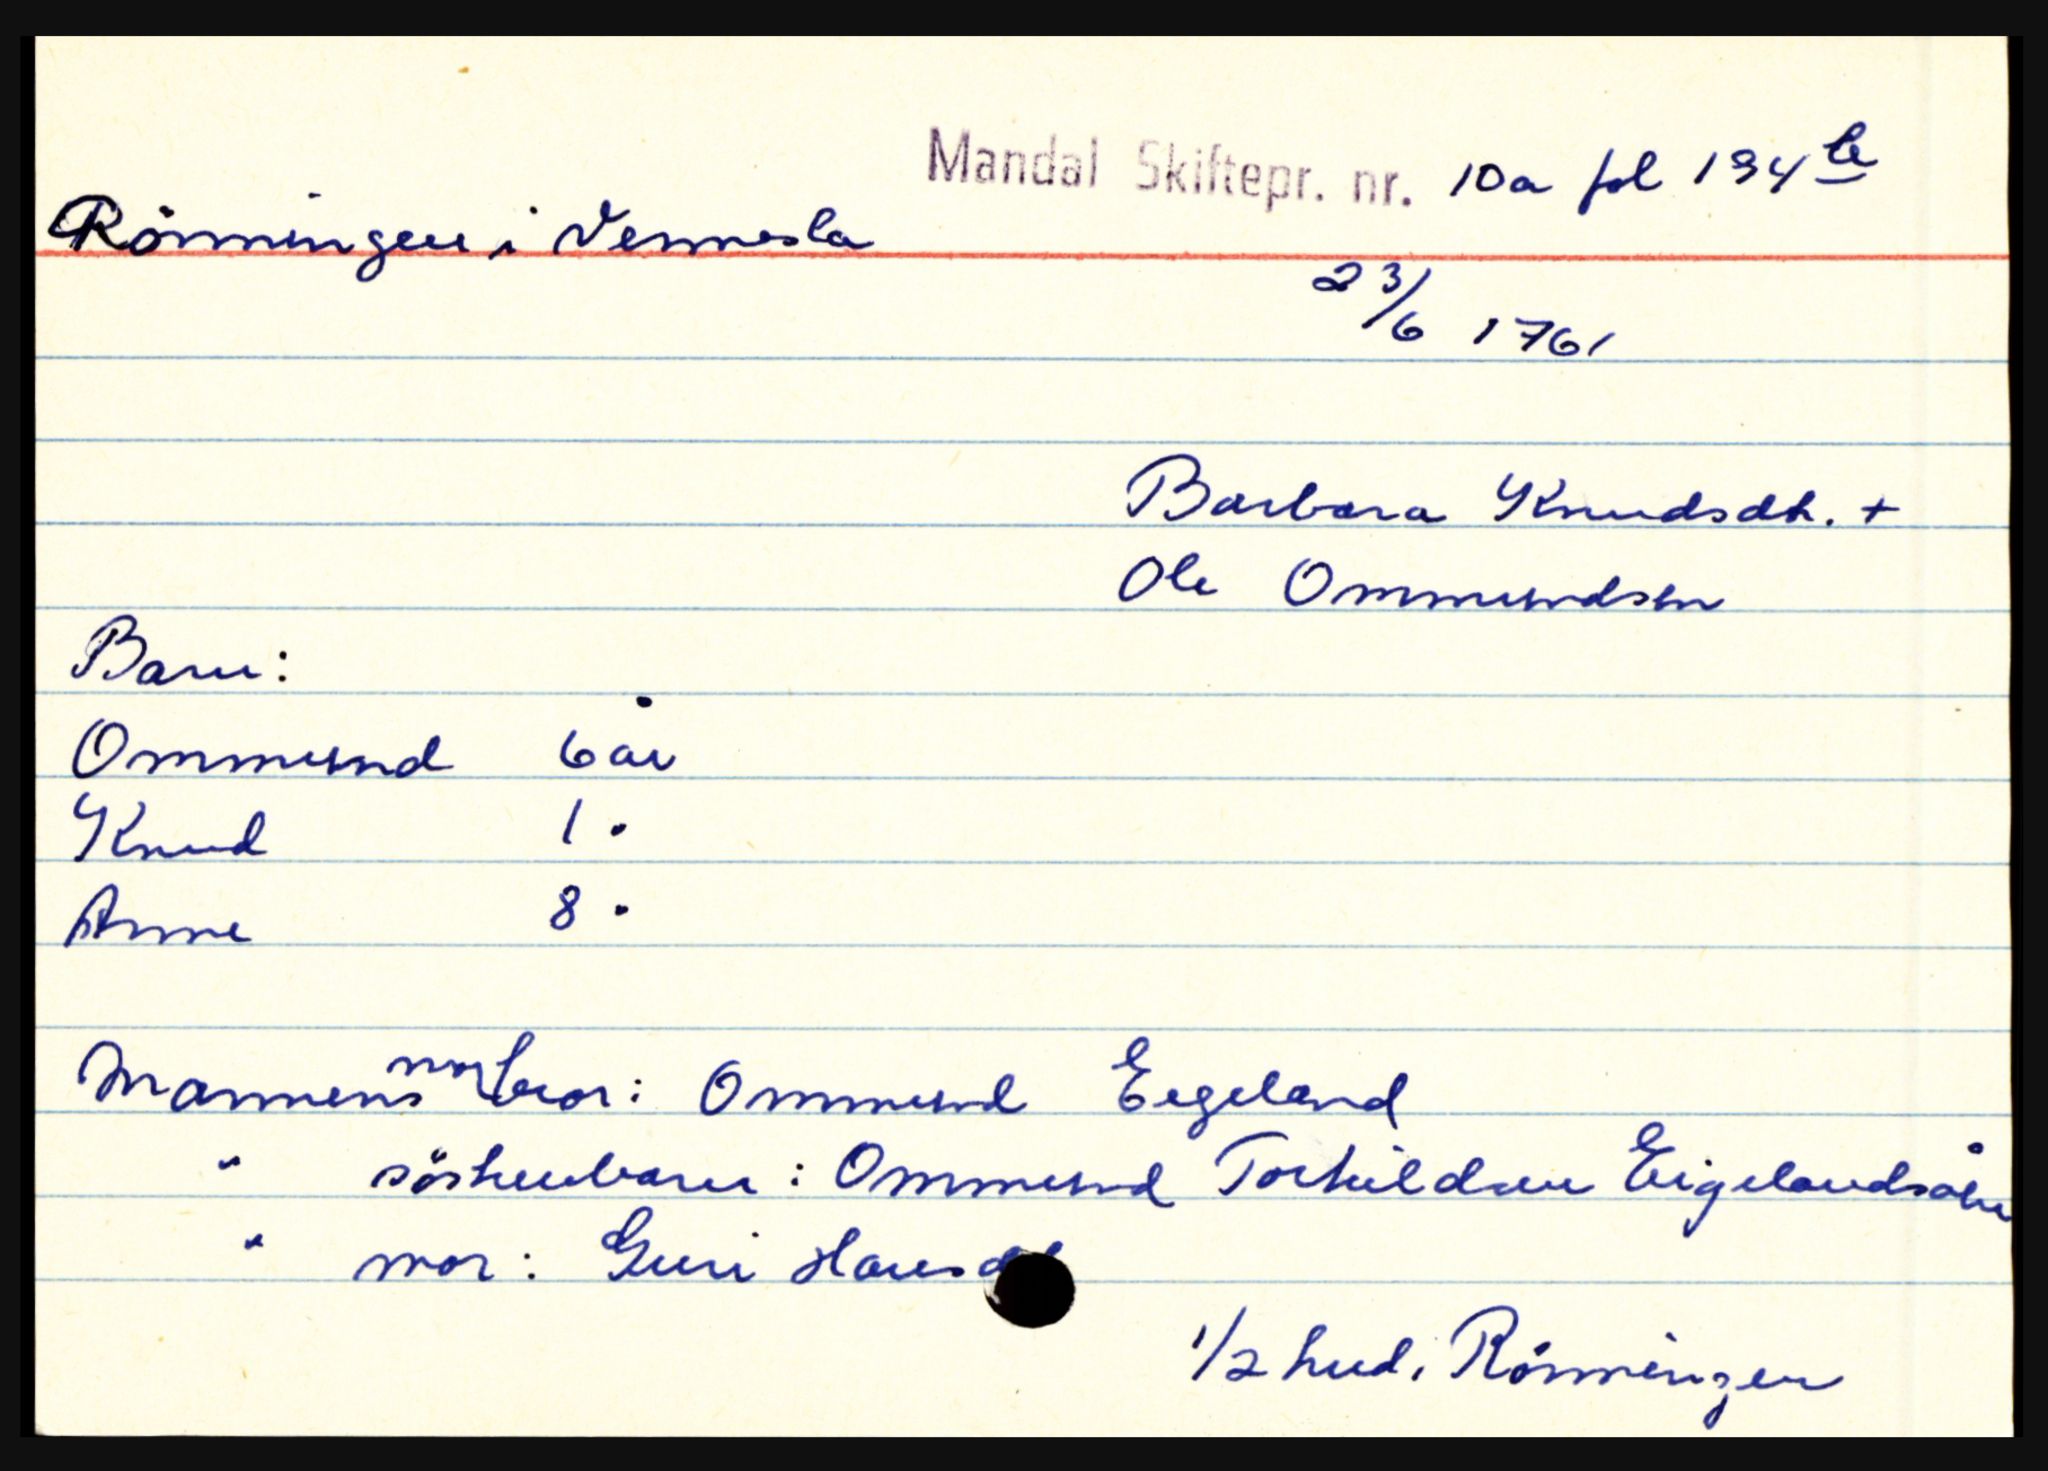 Mandal Skiftepr. nr. 10a fol 194 b
Rönningen i Vennesla
23/6 1761
Barbara Knudsdtr. +
Ole Ommundsen
Barn:
Ommund 6 år
Knud 1 "
Anne 8 "
Mannens morbror: Ommund Eegeland
" söskenbarn: Ommund Torkildsen Eigelandsåen
" mor: Guri Hansd
1/2 hud i Rönningen